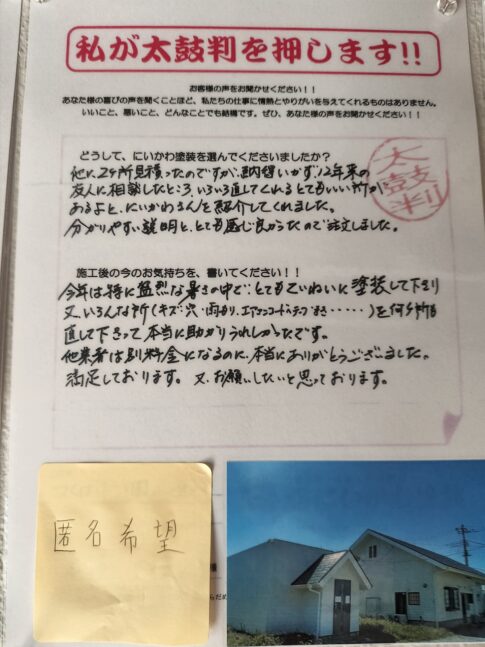 私が太鼓判を押します!!
お客様の声をお聞かせください！！
あなた様の喜びの声を聞くことほど、私たちの仕事に情熱とやりがいを与えてくれるものはありません。
いいこと、悪いこと、どんなことでも結構です。ぜひ、あなた様の声をお聞かせください！！
太鼓判
どうして、にいかわ塗装を選んでくださいましたか？
他に2ヶ所見積ったのですが、納得いかず、12年来の
友人に相談したところ、いろいろ直してくれるとてもいい所が
あるよと、にいかわさんを紹介してくれました。
分かりやすい説明と、とても感じ良かったので注文しました。
施工後の今のお気持ちを、書いてください！！
今年は特に猛烈な暑さの中で、とてもていねいに塗装して下さり
又、いろんな所(キズ・穴・雨もり、エアコンコードのテープまき・・・・・・)を何ヶ所も
直して下さって本当に助かりうれしかったです。
他業者は別料金になるのに、本当にありがとうございました。
満足しております。又、お願いしたいと思っております。
匿名希望
様